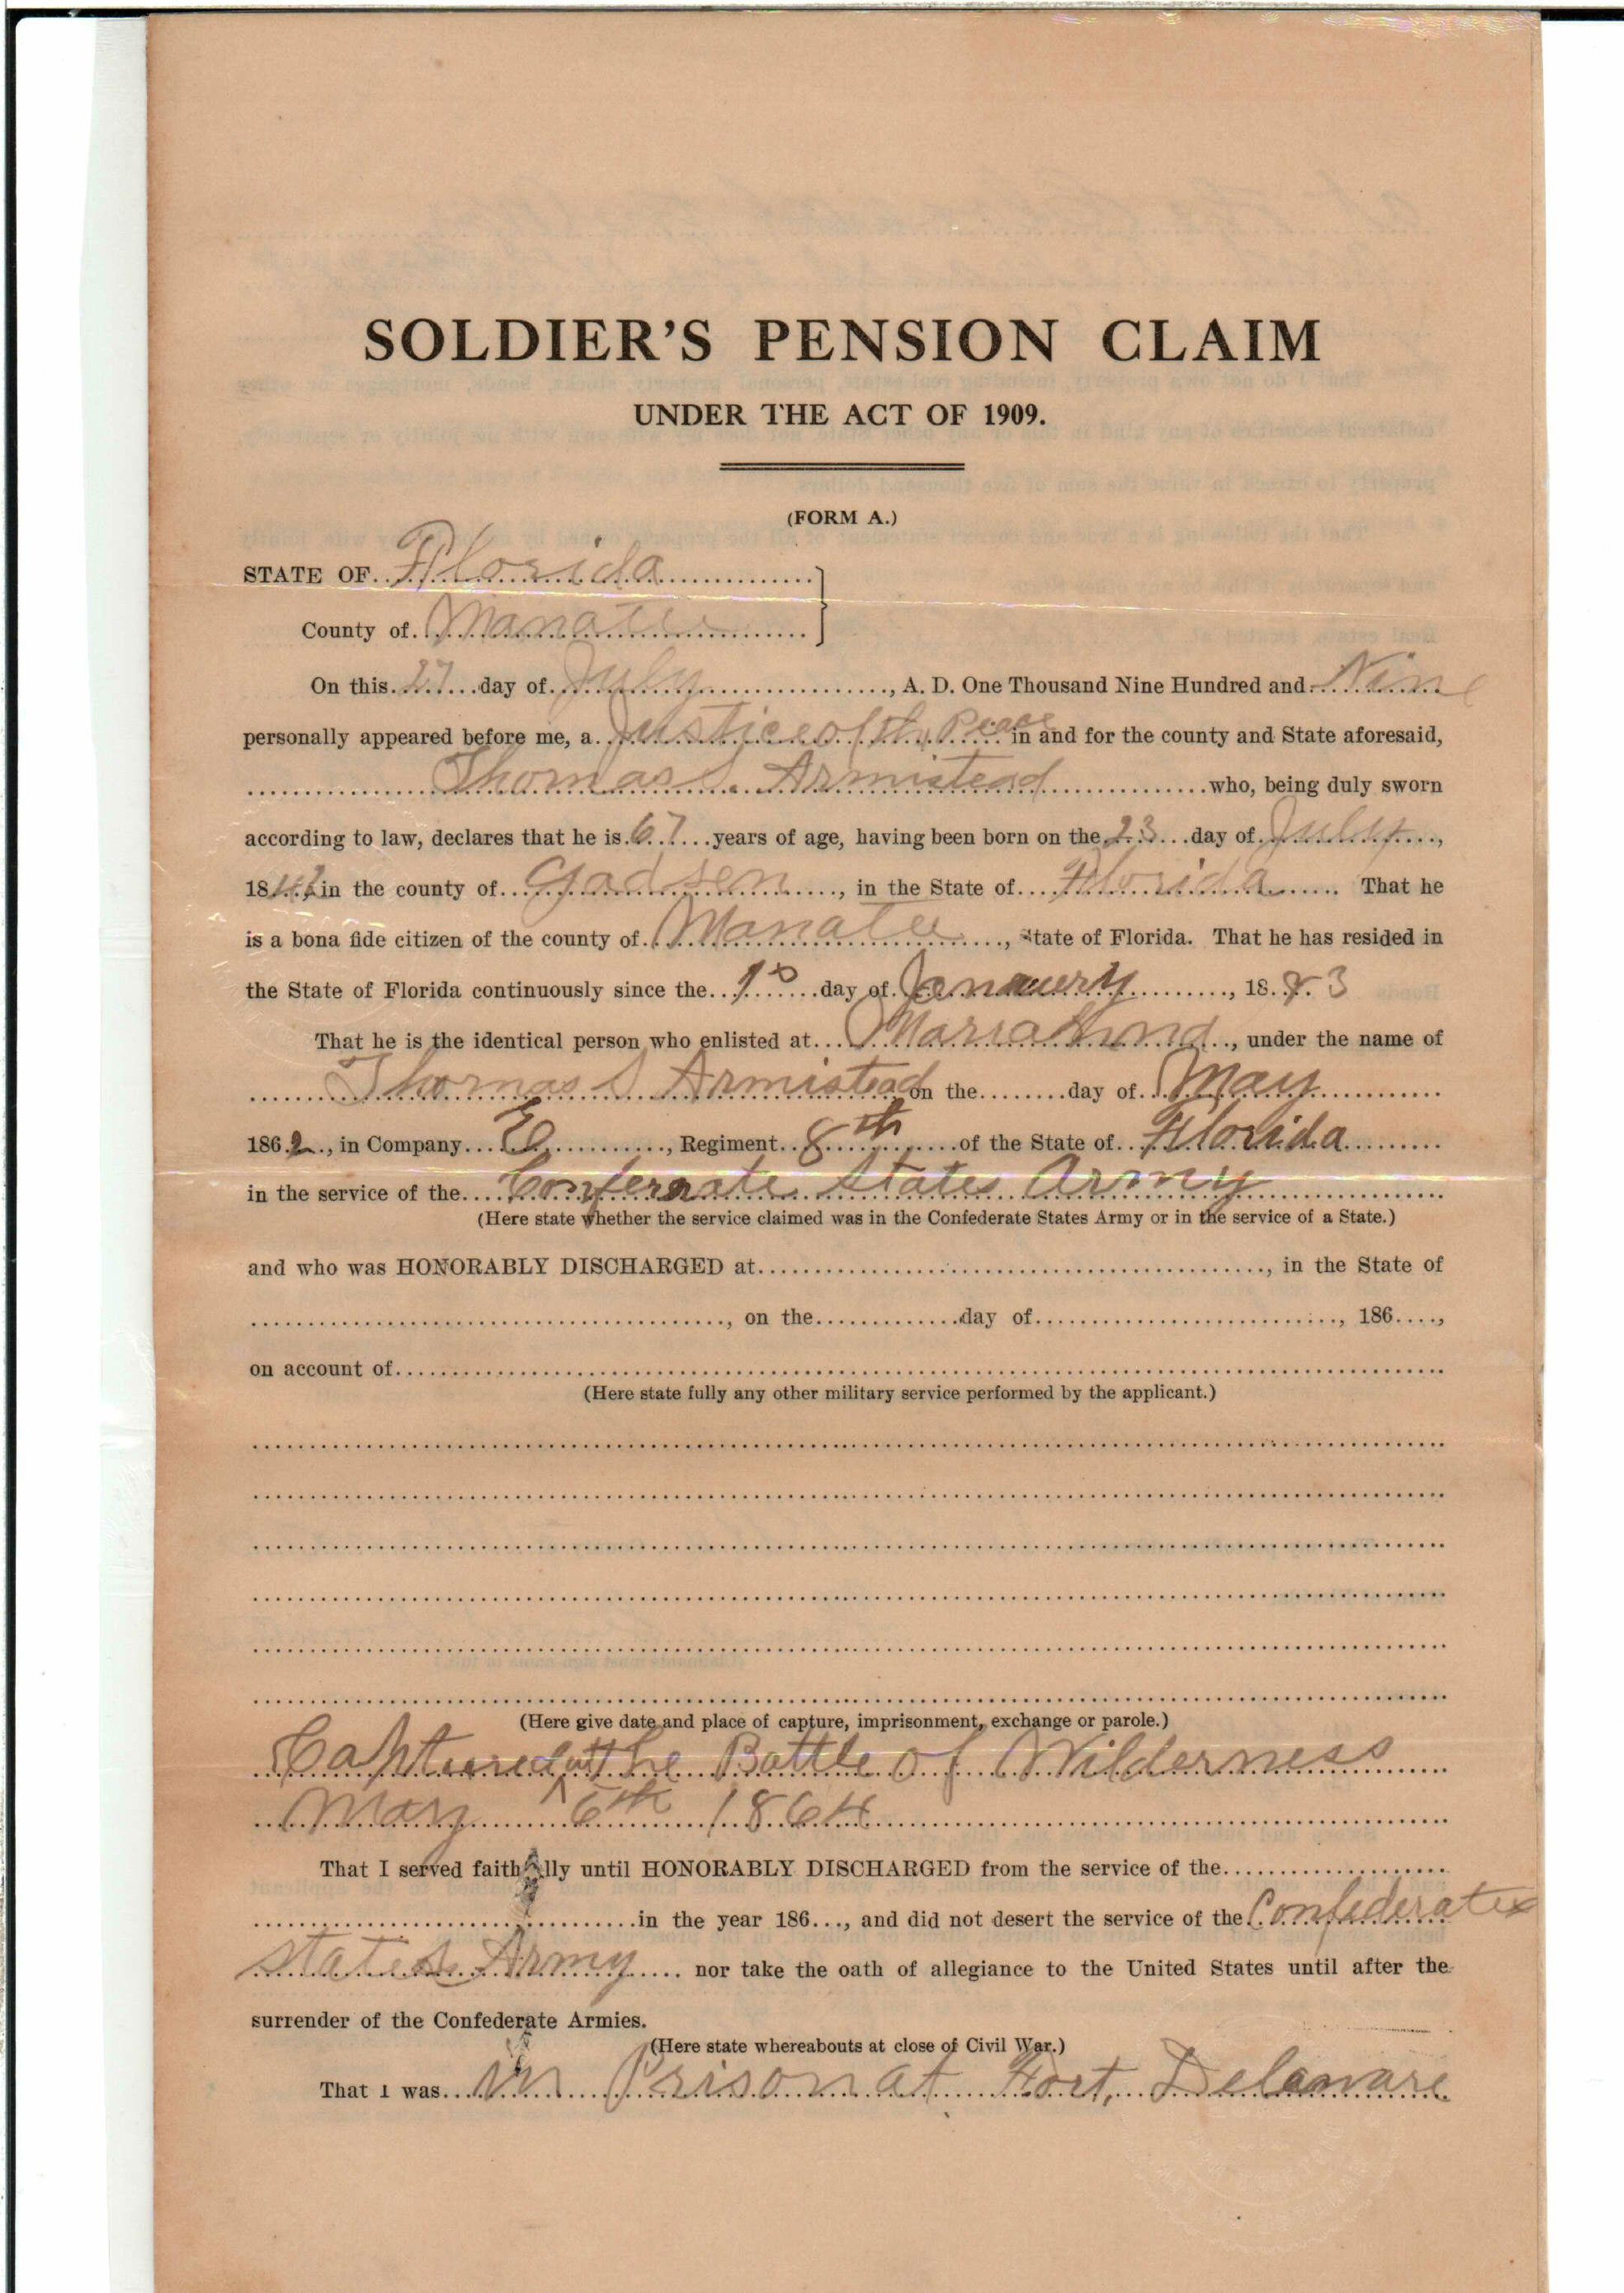 SOLDIER'S PENSION CLAIM
UNDER THE ACT OF 1909.
(FORM A.)
STATE OF Florida
County of Manatee
On this 27 day of July, A. D. One Thousand Nine Hundred and Nine
personally appeared before me, a Justice of the Peace in and for the county and State aforesaid,
Thomas S. Armistead who, being duly sworn
according to law, declares that he is 67 years of age, having been born on the 23 day of July,
1842 in the county of Gadsen, in the State of Florida. That he
is a bona fide citizen of the county of Manatee, State of Florida. That he has resided in
the State of Florida continuously since the 1st day of Janauery, 1883
That he is the identical person who enlisted at, under the name of
Thomas S Armistead on the day of May
1862, in Company E, Regiment 8th of the State of Florida
in the service of the Confernate States Army
(Here state whether the service claimed was in the Confederate States Army or in the service of a State.)
and who was HONORABLY DISCHARGED at, in the State of
, on the day of, 186,
on account of
(Here state fully any other military service performed by the applicant.)
(Here give date and place of capture, imprisonment, exchange or parole.)
Captured at the Battle of Wilderness
May 6th 1864
That I served faithfully until HONORABLY DISCHARGED from the service of the
in the year 186, and did not desert the service of the Confederates
States Army nor take the oath of allegiance to the United States until after the
surrender of the Confederate Armies.
(Here state whereabouts at close of Civil War.)
That I was in Prison at Fort, Delaware